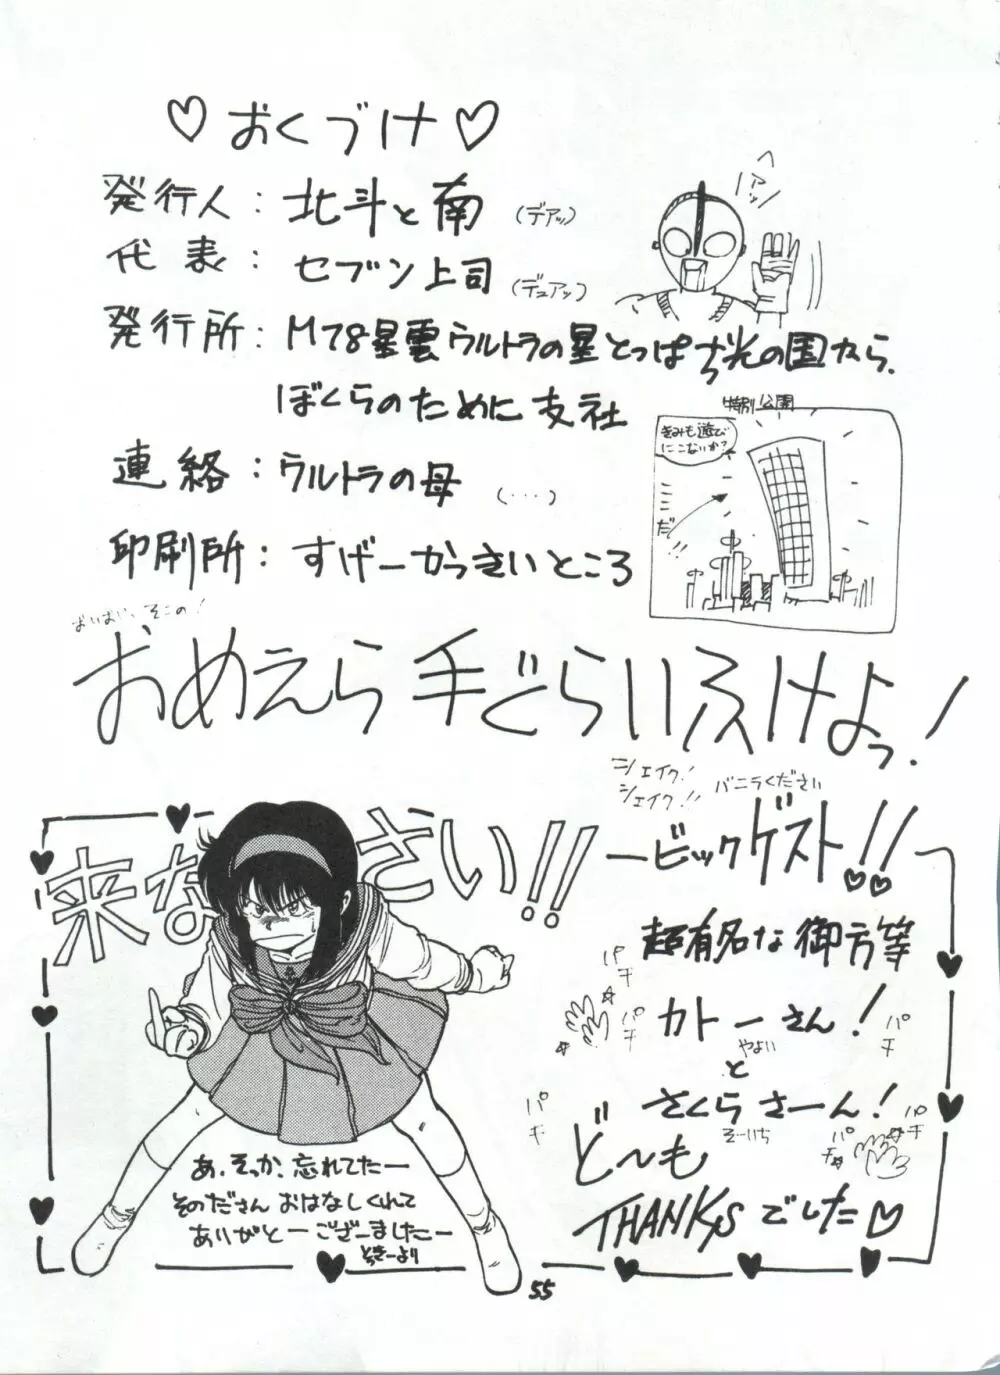 ♡おくづけ♡
発行人：北斗と南（デアッ）
代表：セブン上司（デュアッ）
発行所：M78星雲ウルトラの星とっぱち光の国なら、
ぼくらのために支社
連絡：ウルトラの母（・・・）
印刷所：すげーかっきいところ
特別公園
きみも遊び
にこないか？
ここだ!!
おいおい、そこの！
おめえら手ぐらいふけよっ！
シェイク！
シェイク!!
バニラください
来なさい!!
ービックゲスト!!
超有名な御方等
パチ
パチ
カトーさん！
やよい
パチ
と
さくらさーん！
そーいち
パチ
パチ
パチ
ど〜も
THANKSでした♡
あ、そっか、忘れてたー
そのださんおはなしくれて
ありがとーございましたー
とっきーより
55